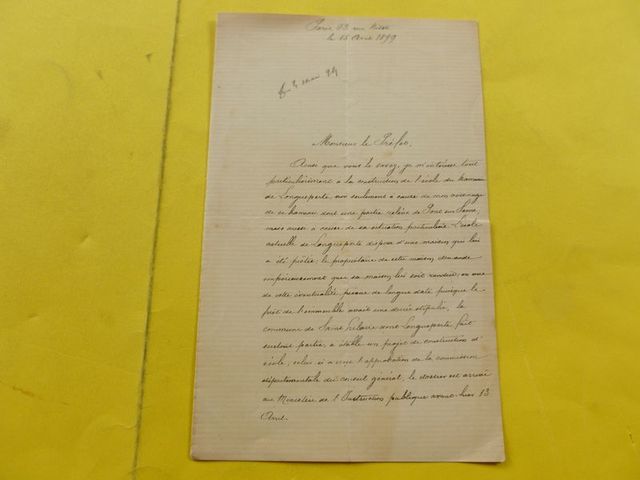 Paris, 23 rue
le 15 Avril 1899
4 mai 99
Monsieur le Préfet,
Ainsi que vous le savez, je m'intéresse tout
particulièrement à la construction de l'école du hameau
de Longueperte non seulement à cause de mon voisinage
de ce hameau dont une partie relève de Pont sur Yonne,
mais aussi à cause de sa situation particulière. L'école
actuelle de Longueperte dispose d'une maison qui lui
a été prêtée; le propriétaire de cette maison demande
impérieusement que sa maison lui soit rendue; en vue
de cette éventualité, prévue de longue date puisque le
prêt de l'immeuble avait une durée stipulée, la
commune de Saint dont Longueperte fait
surtout partie, a établi un projet de construction d'
école, celui-ci a reçu l'approbation de la commission
départementale du conseil général, le dossier est arrivé
au Ministère de l'Instruction publique avant-hier 13
Avril.